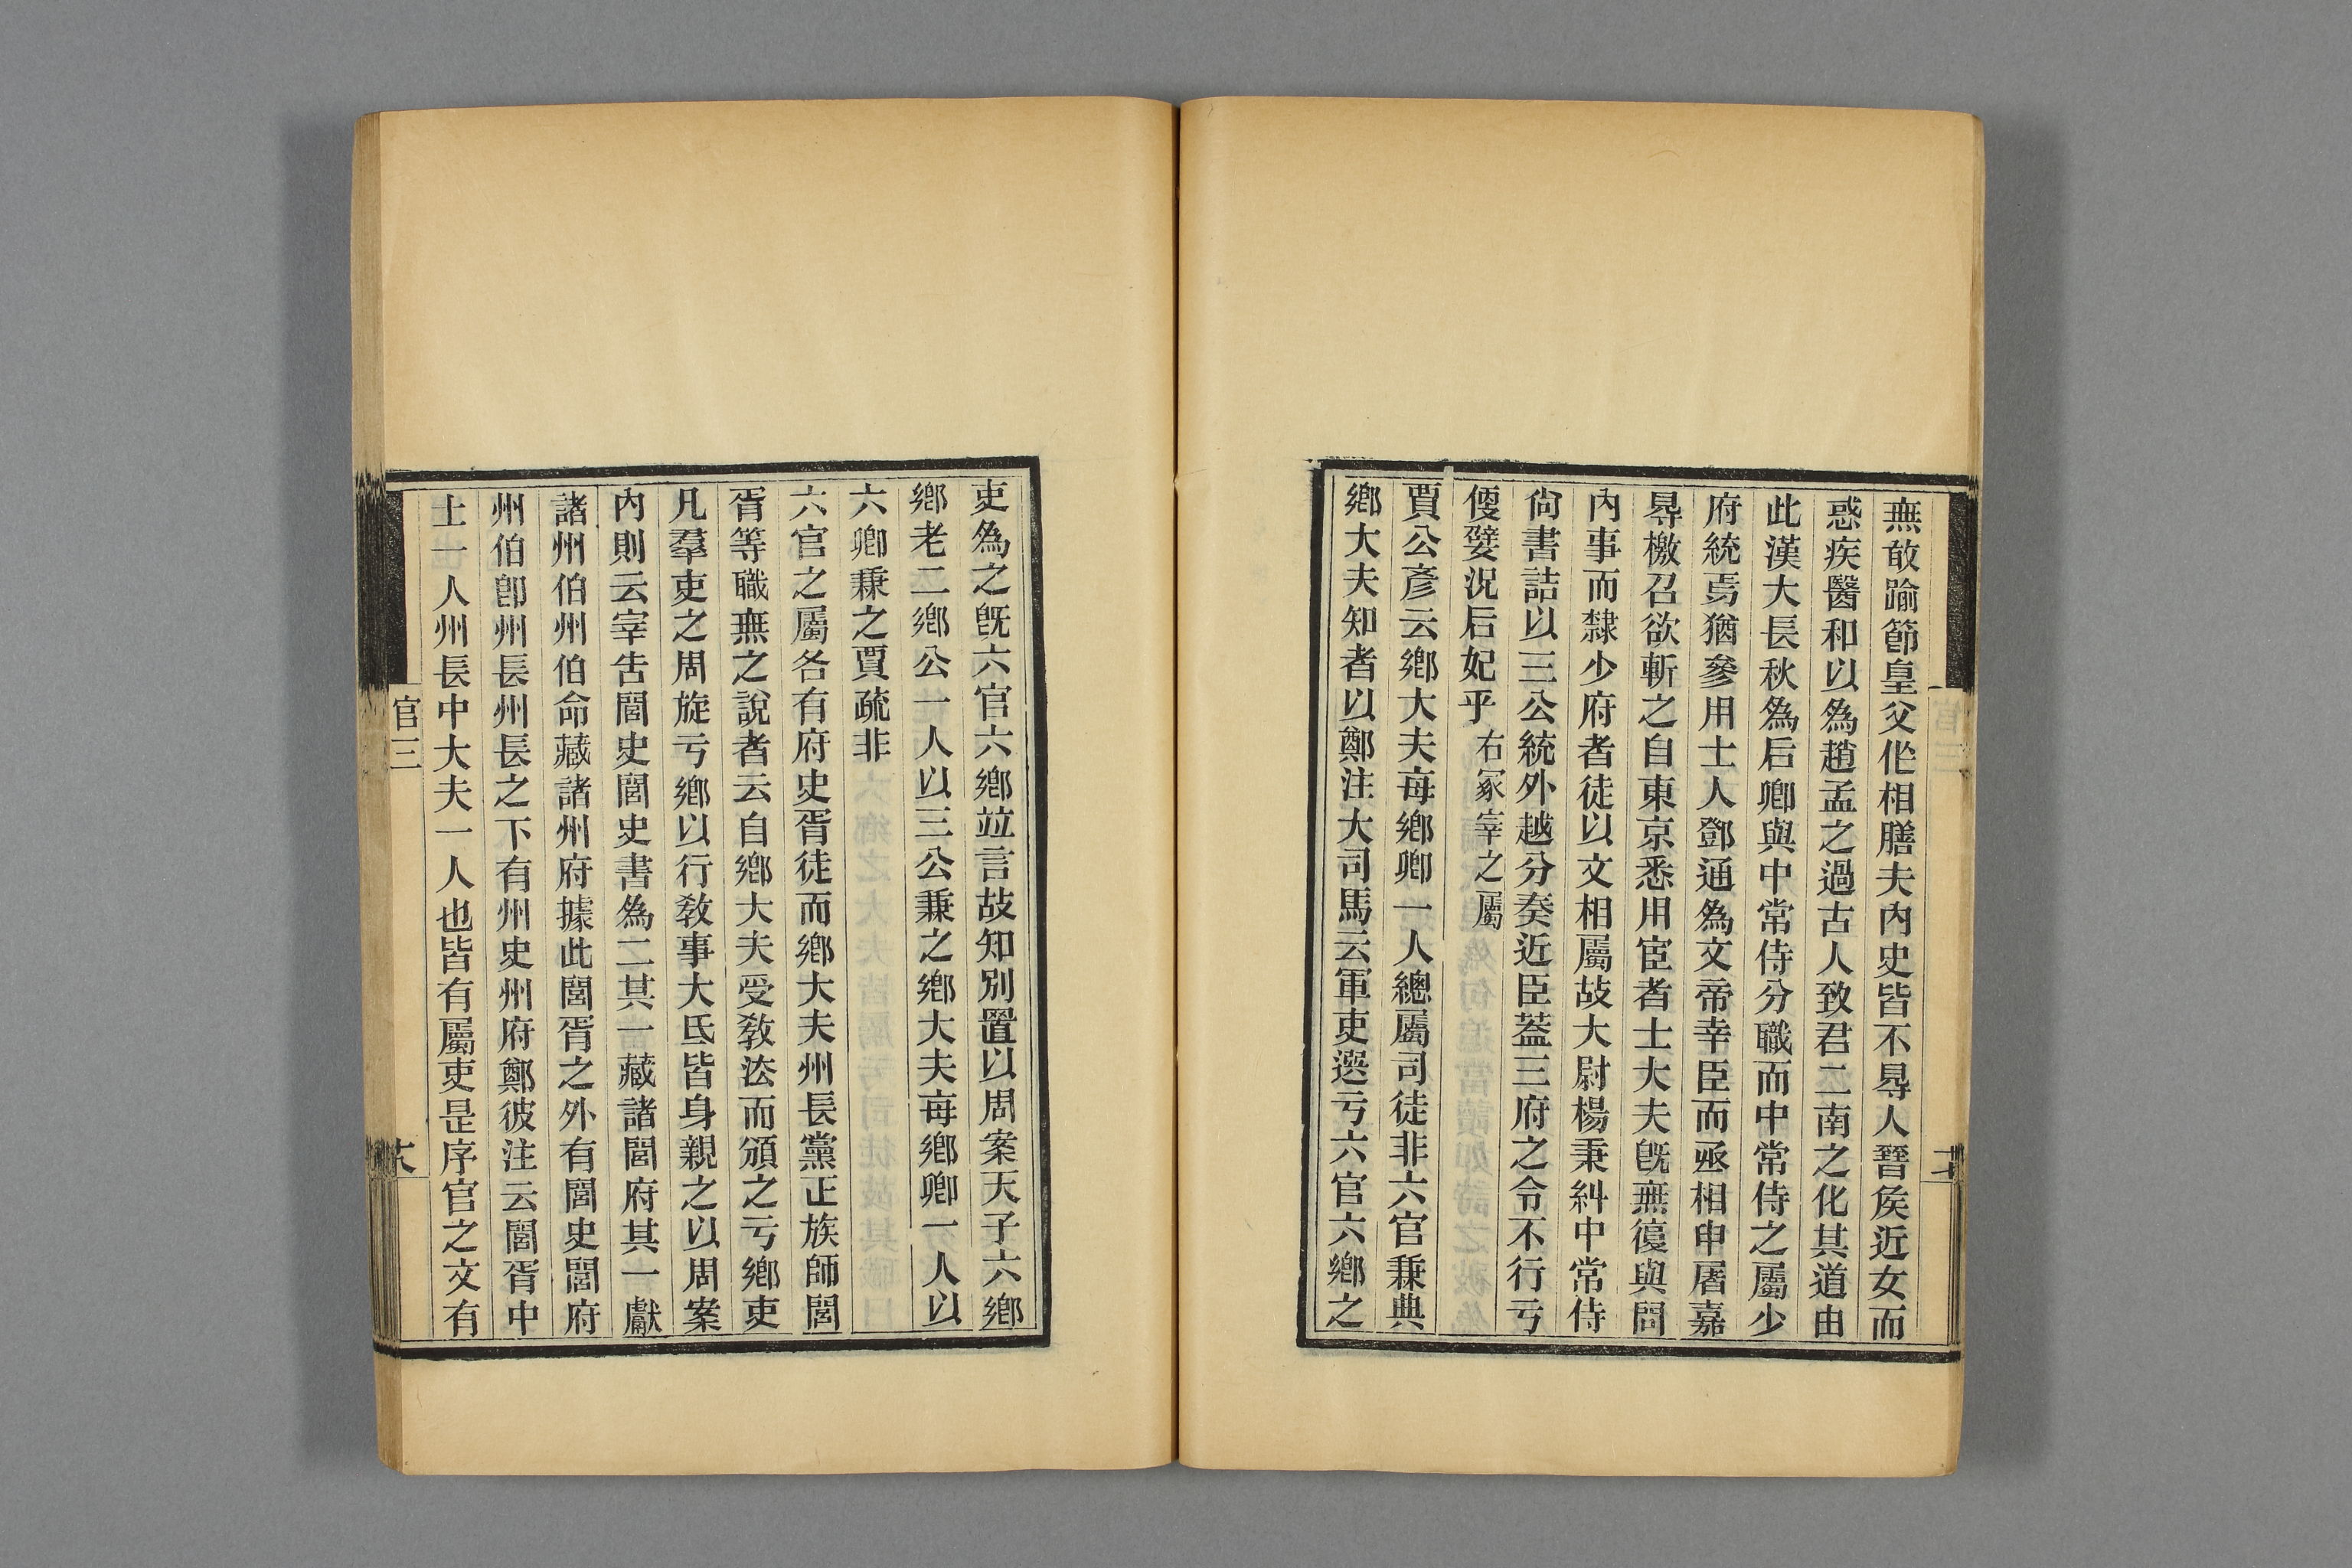 無敢踰節皇父作相膳夫內史皆不㝵人晉矦近女而
惑疾醫和以爲趙孟之過古人致君二南之化其道由
此漢大長秋爲后卿與中常侍分職而中常侍之屬少
府統焉猶參用士人鄧通爲文帝幸臣而丞相申屠嘉
㝵檄召欲斬之自東京悉用宦者士大夫旣無復與聞
內事而隸少府者徒以文相屬故大尉楊秉糾中常侍
尙書詰以三公統外越分奏近臣葢三府之令不行亏
便嬖況后妃乎 右冢宰之屬
賈公彥云鄕大夫每鄕卿一人總屬司徒非六官兼典
鄕大夫知者以鄭注大司馬云軍吏選亏六官六鄕之
吏爲之旣六官六鄕竝言故知別置以周案天子六鄕
鄕老二鄕公一人以三公兼之鄕大夫每鄕卿一人以
六卿兼之賈疏非
六官之屬各有府史胥徒而鄕大夫州長黨正族師閭
胥等職無之說者云自鄕大夫受敎法而頒之亏鄕吏
凡羣吏之周旋亏鄕以行敎事大氐皆身親之以周案
內則云宰告閭史閭史書爲二其一藏諸閭府其一獻
諸州伯州伯命藏諸州府據此閭胥之外有閭史閭府
州伯卽州長州長之下有州史州府鄭彼注云閭胥中
士一人州長中大夫一人也皆有屬吏是序官之文有
官三